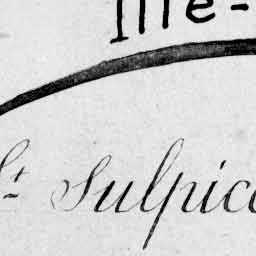 Ille-
St Sulpice